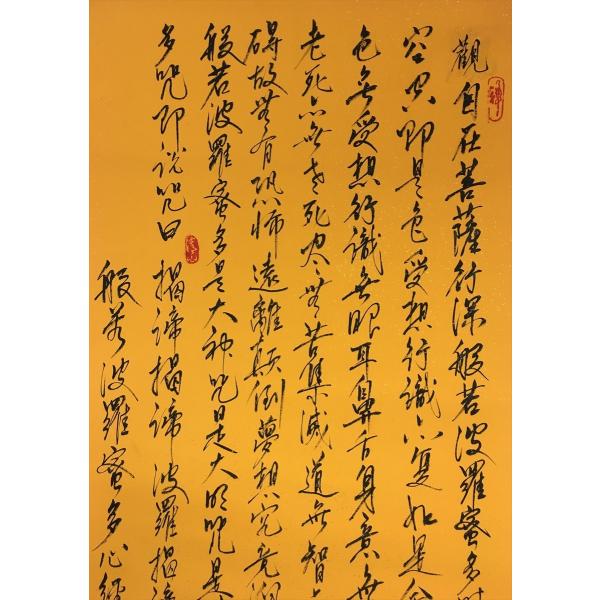 觀自在菩薩行深般若波羅蜜多時
空空即是色受想行識亦復如是舍
色無受想行識無眼耳鼻舌身意無
老死亦無老死盡無苦集滅道無智
礙故無有恐怖遠離顛倒夢想究竟涅
般若波羅蜜多是大神咒是大明咒是
多咒即說咒曰 揭諦揭諦 波羅揭諦
般若波羅蜜多心經